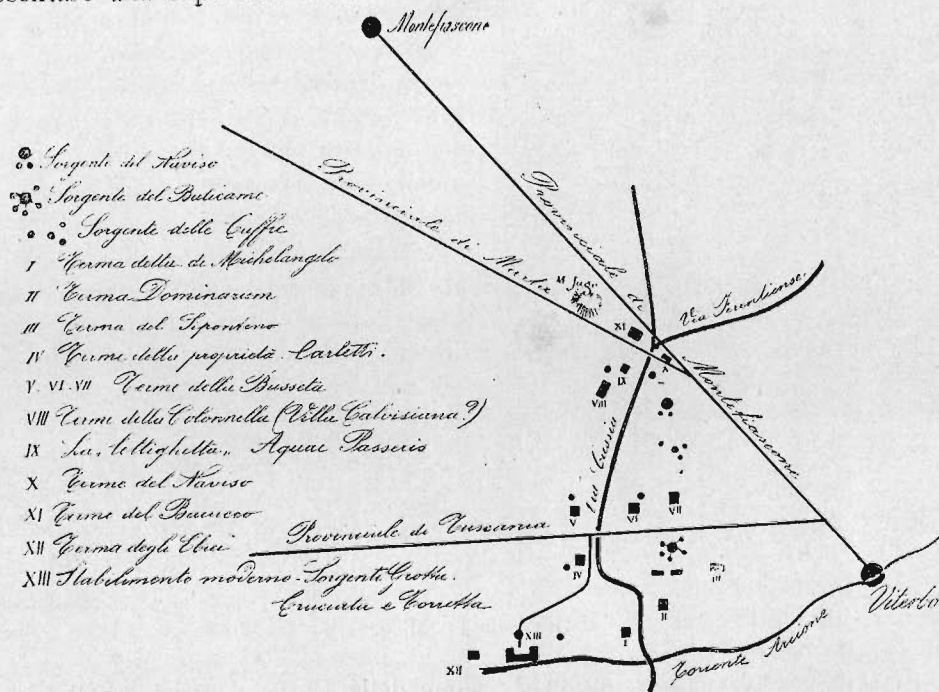 Montefiascone
Sorgente del Naviso
Sorgente del Bulicame
Sorgente delle Cuffie
I Terma detta di Michelangelo
II Terma Dominarum
III Terma del Sipontino
IV Terme della proprietà Carletti.
V. VI. VII Terme della Busseta
VIII Terme della Colonnella (Villa Calvisiana?)
IX La "lettighetta" Aquae Passeris
X Terme del Naviso
XI Terme del Bacucco
XII Terma degli Ebrei
XIII Stabilimento moderno - Sorgenti Grotta.
Cruciata e Torretta
Provinciale di Marta
Provinciale di Montefiascone
Via Ferentiense
XI
X
IX
VIII
Via Cassia
V
VI
VII
Provinciale di Tuscania
IV
III
II
I
XIII
XII
Viterbo
Torrente Arcione